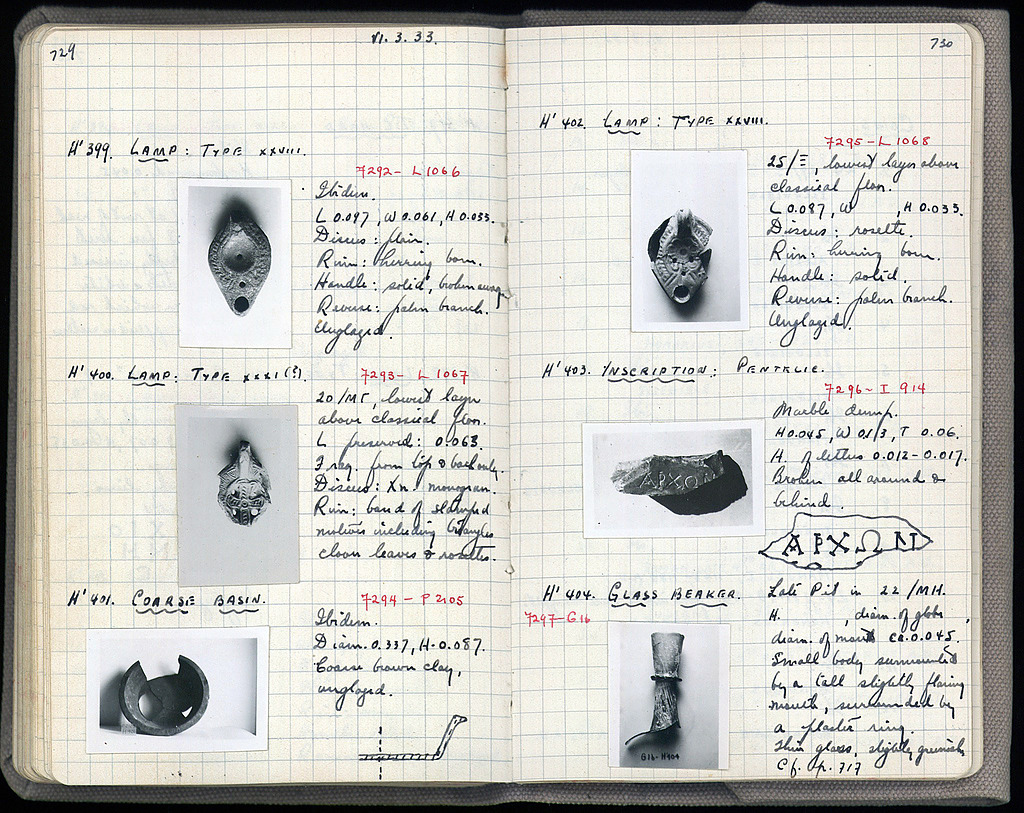 729
VI. 3. 33.
H' 399. LAMP: TYPE XXVIII.
7292 - L 1066
Ibidem.
L 0.097, W 0.061, H 0.033.
Discus: plain.
Rim: herring bone.
Handle: solid, broken away
Reverse: palm branch.
Unglazed.
H' 400. LAMP: TYPE XXXI (?).
7293 - L 1067
20/ΜΓ, lowest layer
above classical floor.
L preserved: 0.063.
Frag. from top & back only.
Discus: Xn. monogram.
Rim: band of stamped
motives including triangles
clover leaves & rosettes.
H' 401. COARSE BASIN.
7294 - P 2105
Ibidem.
Diam. 0.337, H. 0.087.
Coarse brown clay,
unglazed.
730
H' 402. LAMP: TYPE XXVIII.
7295 - L 1068
25/Ξ, lowest layer above
classical floor.
L 0.087, W , H 0.033.
Discus: rosette.
Rim: herring bone.
Handle: solid.
Reverse: palm branch.
Unglazed.
H' 403. INSCRIPTION: PENTELIC.
7296 - I 914
Marble dump.
H 0.045, W 0.13, T 0.06.
H. of letters 0.012-0.017.
Broken all around &
behind.
ΑΡΧΩΝ
ΑΡΧΩΝ
H' 404. GLASS BEAKER.
7297 - G 16
G16-H404
Late Pit in 22/ΜΗ.
H. , diam. of globe ,
diam. of mouth ca. 0.045.
Small body surmounted
by a tall slightly flaring
mouth, surrounded by
a plastic ring.
Thin glass, slightly greenish
Cf. p. 717